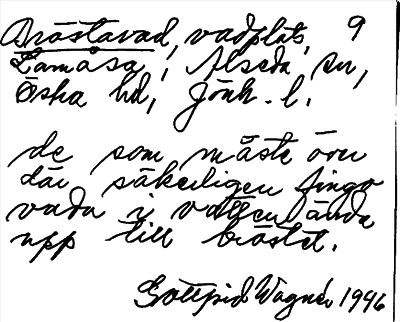 Bröstavad, vadplats, 9
Lamåsa, Alseda sn,
Östra hd, Jönk. l.
de som måste över
där säkerligen fingo
vada i vattenl ända
upp till bröstet.
Gottfrid Wagnér 1946